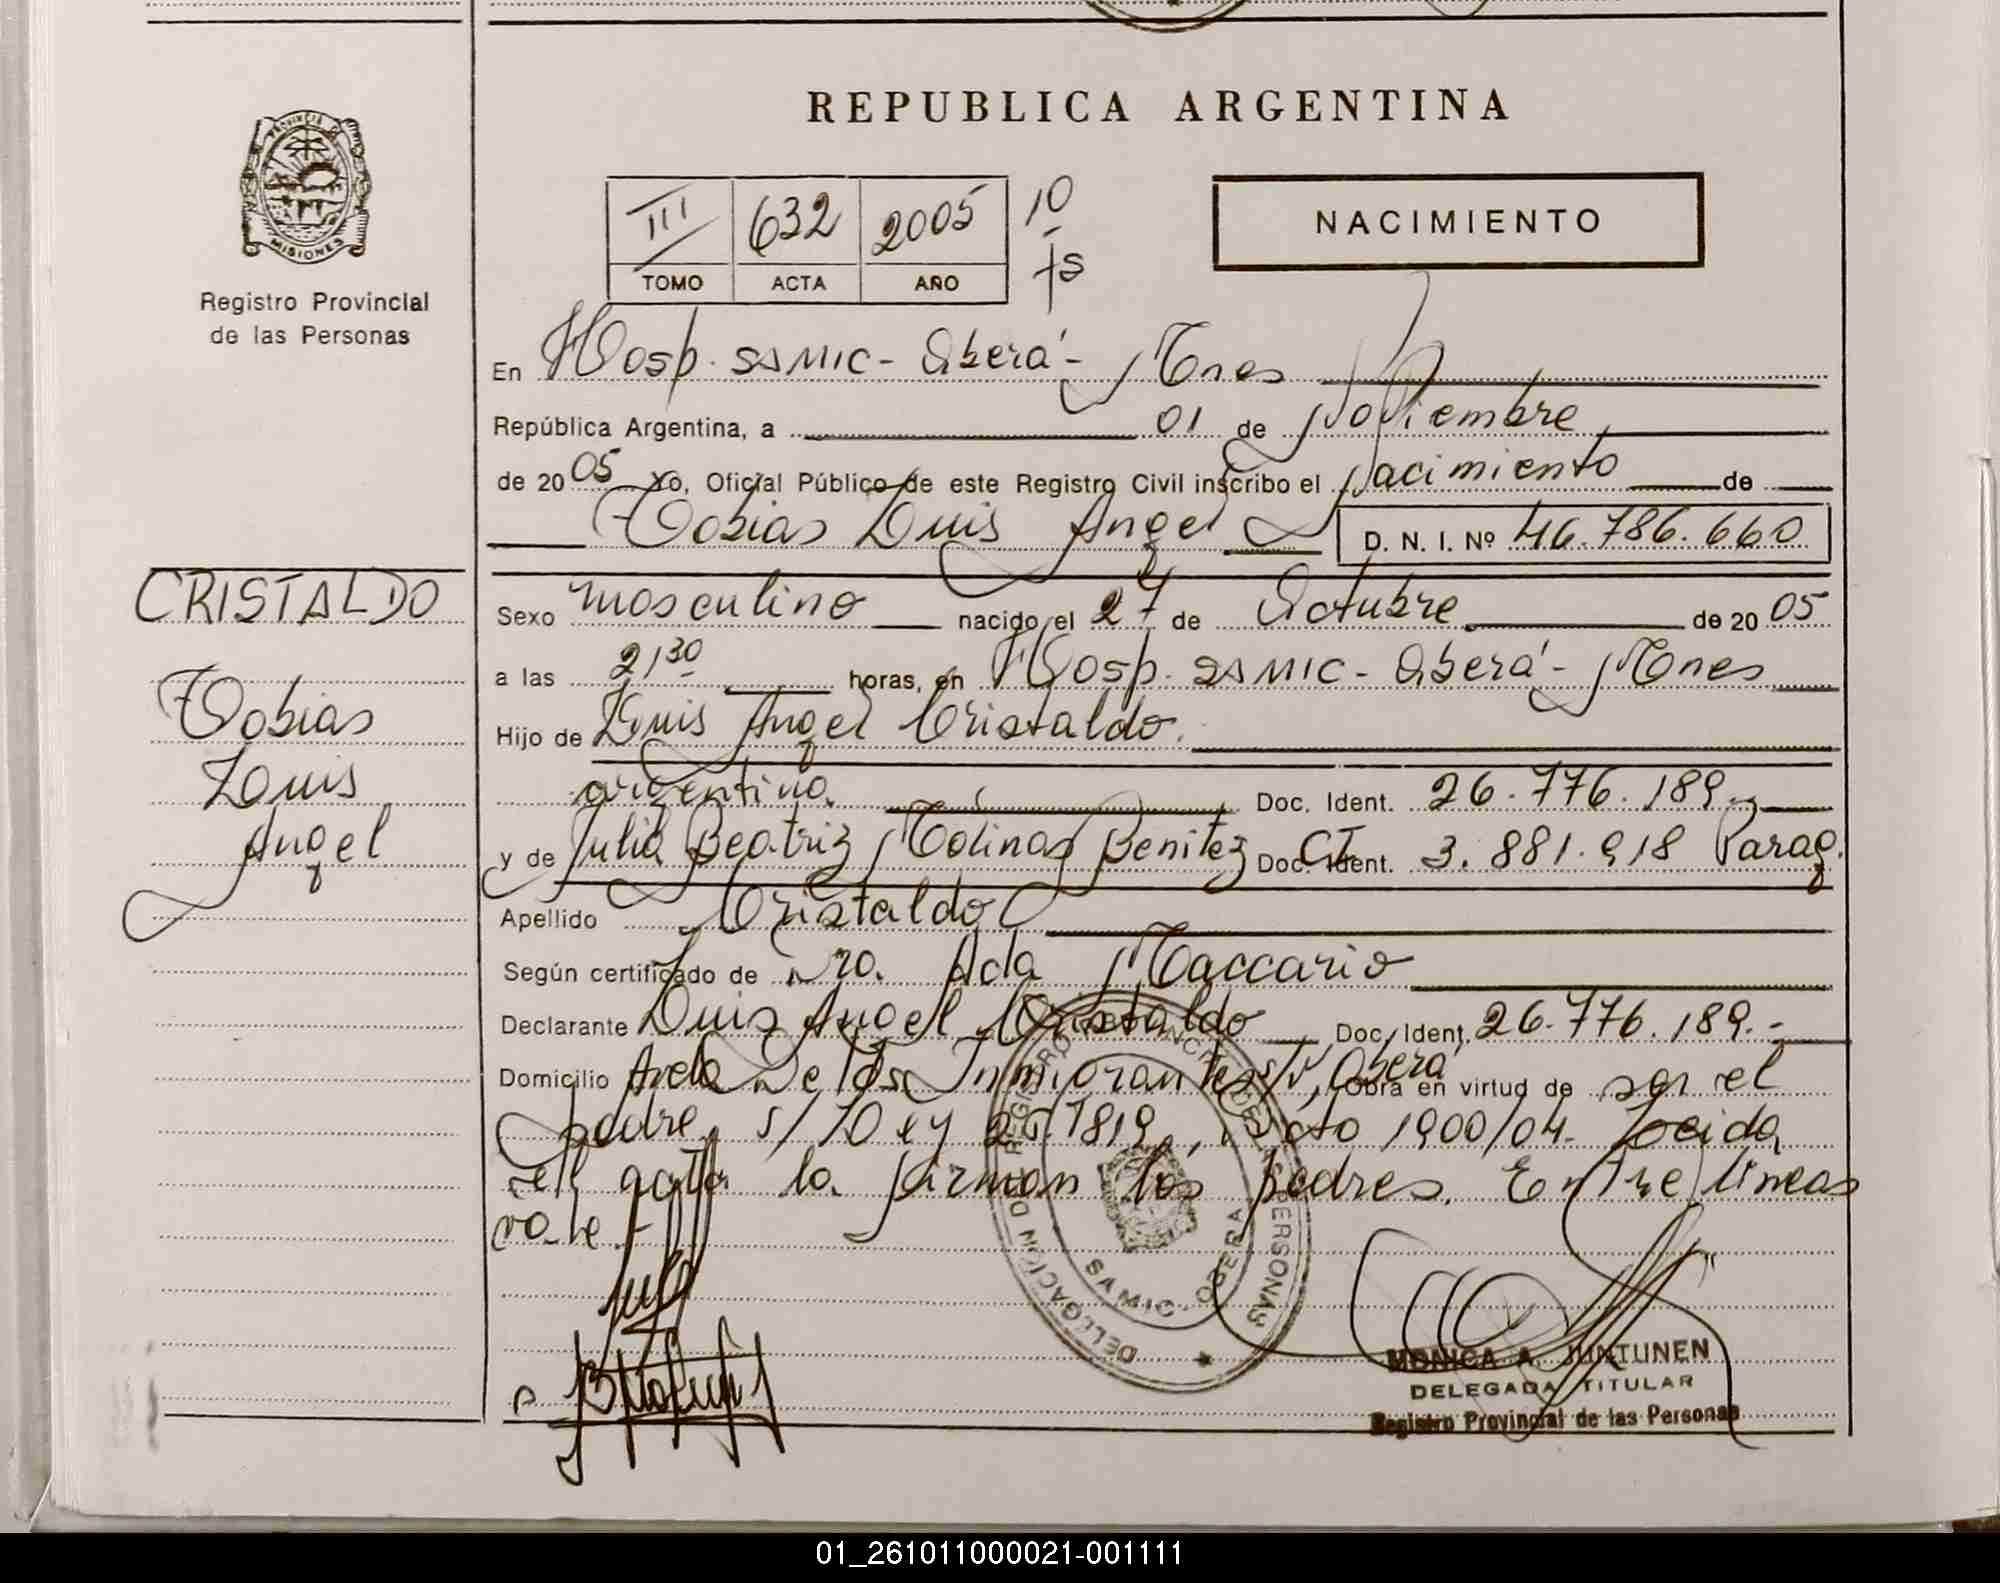 REPUBLICA ARGENTINA
PROVINCIA DE MISIONES
Registro Provincial
de las Personas
III 632 2005 10 fs
TOMO ACTA AÑO
NACIMIENTO
En Hosp. SAMIC - Oberá - Mnes
República Argentina, a 01 de Noviembre
de 2005 Yo, Oficial Público de este Registro Civil inscribo el Nacimiento de
Tobias Luis Angel D. N. I. Nº 46.786.660
CRISTALDO
Tobias
Luis
Angel
Sexo masculino nacido el 27 de Octubre de 2005
a las 21 30 horas, en Hosp. SAMIC - Oberá - Mnes
Hijo de Luis Angel Cristaldo.
argentino. Doc. Ident. 26.776.189.-
y de Julia Beatriz Molinas Benitez Doc. Ident. CI 3.881.918 Parag.
Apellido Cristaldo
Según certificado de Dra. Ada Maccario
Declarante Luis Angel Cristaldo Doc. Ident. 26.776.189.-
Domicilio Avda De los Inmigrantes s/n, Oberá Obra en virtud de ser el
padre, s/ Ley 1900/04. Leida
el acta la firman los padres. Entre lineas
vale.-
REGISTRO PROVINCIAL DE LAS PERSONAS
DELEGACION
SAMIC - OBERA
MONICA A. JUNTUNEN
DELEGADA TITULAR
Registro Provincial de las Personas
01_261011000021-001111